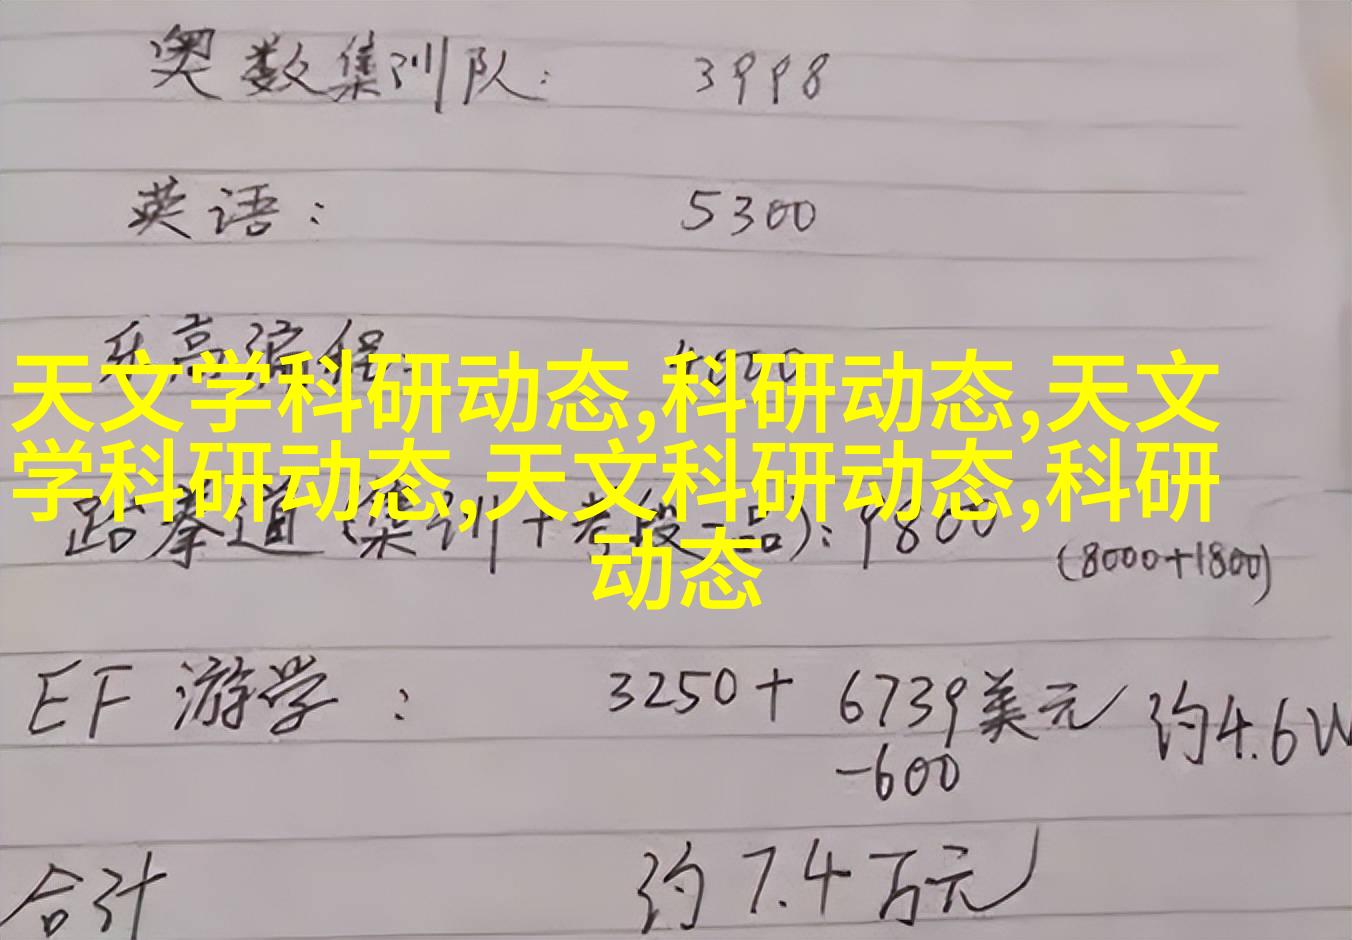 奥数集训队: 3998
英语: 5300
乐高编程: 4800
天文学科研动态,科研动态,天文
学科研动态,天文科研动态,科研
动态
跆拳道(集训+考段一品): 9800
(8000+1800)
EF 游学: 3250+6739美元 约4.6W
-600
合计 约7.4万元